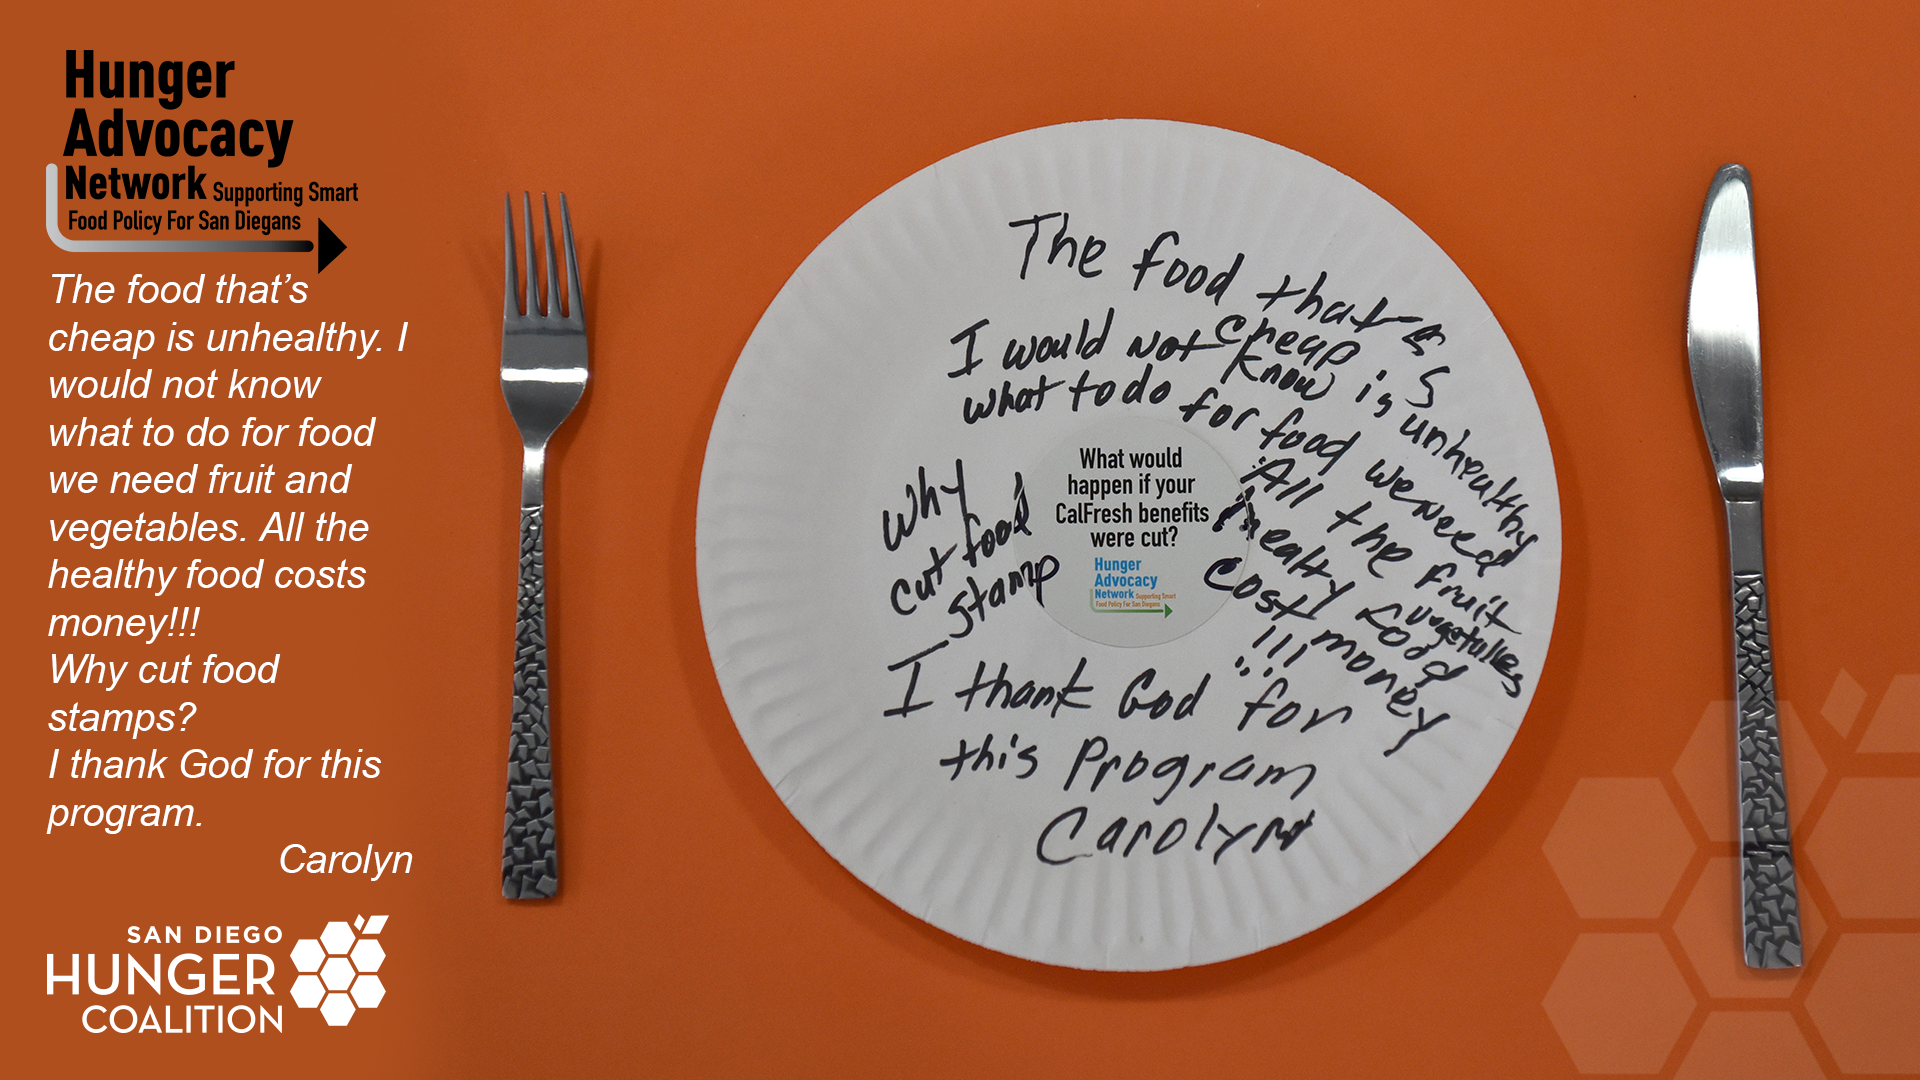 Hunger
Advocacy
Network Supporting Smart
Food Policy For San Diegans
The food that's
cheap is unhealthy. I
would not know
what to do for food
we need fruit and
vegetables. All the
healthy food costs
money!!!
Why cut food
stamps?
I thank God for this
program.
Carolyn
SAN DIEGO
HUNGER
COALITION
The food that's
cheap is unhealthy
I would not know
what to do for food we need
fruit
vegetables
All the
healty food
cost money
!!!
Why
cut food
stamp
I thank God for
this Program
Carolyn
What would
happen if your
CalFresh benefits
were cut?
Hunger
Advocacy
Network Supporting Smart
Food Policy For San Diegans